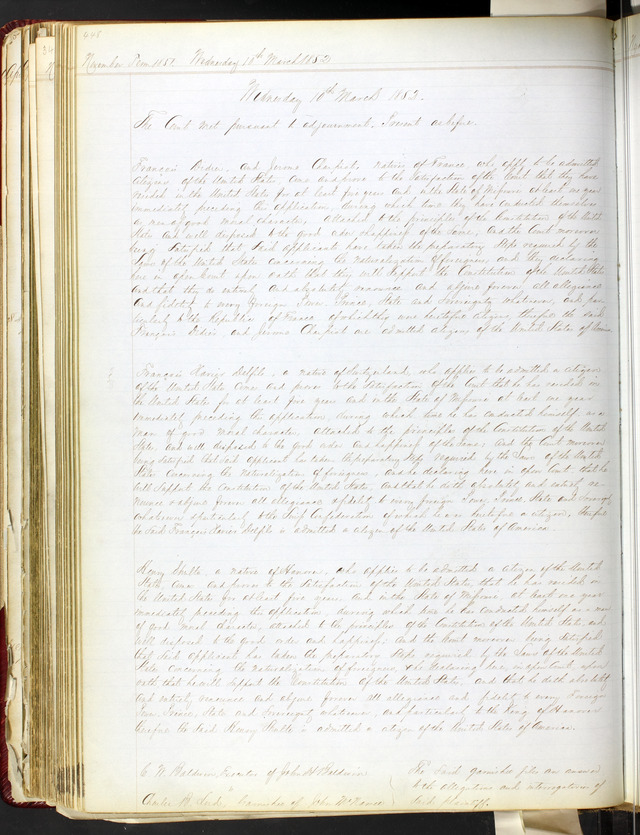 448
November Term 1851. Wednesday 10th March 1852
Wednesday 10th March 1852.
The Court met pursuant to adjournment. Present as before.
François Didier and Jerome Chs, natives of France who apply to be admitted
citizens of the United States, come and prove to the satisfaction of the Court that they have
resided in the United States for at least five years and in the State of Missouri at least one year
immediately preceding the application, during which time they have conducted themselves
as men of good moral character, attached to the principles of the Constitution of the United
States and well disposed to the good order and happiness of the same, And the Court moreover
being satisfied that said applicants have taken the preparatory steps required by the
Laws of the United States concerning the naturalization of foreigners, and they declaring
here in open Court upon oath that they will support the Constitution of the United States
And that they do entirely and absolutely renounce and abjure forever all allegiance
and fidelity to every foreign Power, Prince, State and Sovereignty whatsoever, and par-
ticularly to the Republic of France of which they were heretofore citizens, therefore the said
François Didier and Jerome are admitted citizens of the United States of America
François Xavier Delfils, a native of Switzerland, who applies to be admitted a citizen
of the United States, comes and proves to the satisfaction of the Court that he has resided in
the United States for at least five years and in the State of Missouri at least one year
immediately preceding the application, during which time he has conducted himself as a
man of good moral character attached to the principles of the Constitution of the United
States, and well disposed to the good order and happiness of the same; And the Court moreover
being satisfied that said applicant has taken the preparatory steps required by the Laws of the United
States concerning the naturalization of foreigners, and he declaring here in open Court that he
will support the Constitution of the United States, And that he doth absolutely and entirely re-
nounce & abjure forever all allegiance & fidelity to every foreign Power, Prince, State and Sovereignty
whatsoever & particularly to the Swiss Confederation of which he was heretofore a citizen, therefore
the said François Xavier Delfils is admitted a citizen of the United States of America.
Henry, a native of Hanover, who applies to be admitted a citizen of the United
States, comes and proves to the satisfaction of the United States, that he has resided in
the United States for at least five years, and in the State of Missouri, at least one year
immediately preceding the application during which time he has conducted himself as a man
of good moral character, attached to the principles of the Constitution of the United States, and
well disposed to the good order and happiness; And the Court moreover being satisfied
that said applicant has taken the preparatory steps required by the Laws of the United
States concerning the naturalization of foreigners, & he declaring here in open Court upon
oath that he will support the Constitution of the United States, and that he doth absolutely
and entirely renounce and abjure forever all allegiance and fidelity to every Foreign
Power, Prince, State and Sovereignty whatsoever, and particularly to the King of Hanover
therefore the said Henry is admitted a citizen of the United States of America.
C. W. Baldwin, Executor of John H Baldwin
Charles H. Garnishee of John
The said garnishee files an answer
to the allegations and interrogatories of
said plaintiff.